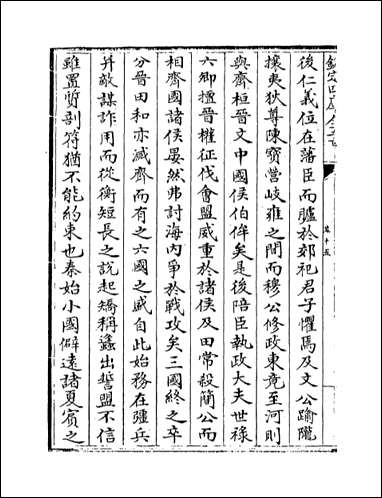 欽定四庫全書
卷十五
後仁義位在藩臣而臚於郊祀君子懼焉及文公踰隴
攘夷狄尊陳寳營岐雍之間而穆公修政東竟至河則
與齊桓晉文中國侯伯侔矣是後陪臣執政大夫世祿
六卿擅晉權征伐會盟威重於諸侯及田常殺簡公而
相齊國諸侯晏然弗討海内爭於戰攻矣三國終之卒
分晉田和亦滅齊而有之六國之盛自此始務在彊兵
并敵謀詐用而從衡短長之説起矯稱蠭出誓盟不信
雖置質剖符猶不能約束也秦始小國僻遠諸夏賓之